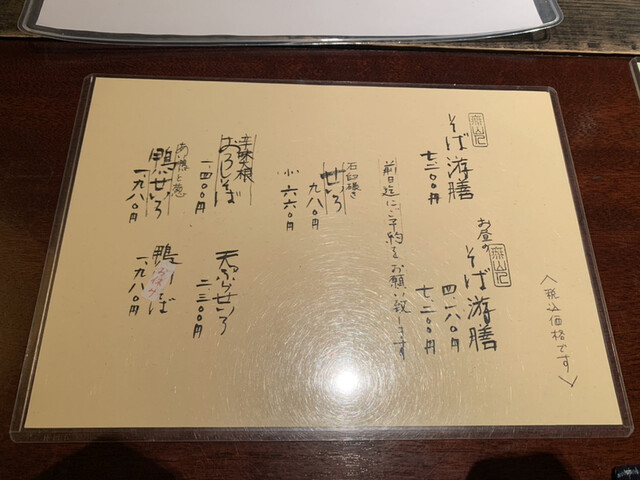 ＜税込価格です＞
そば游膳
七、二〇〇円
お昼の
そば游膳
四、六〇円
七、二〇〇円
前日迄にご予約をお願い致します
石臼碾き
せいろ
九八〇円
小 六六〇円
辛味大根
おろしそば
一、四〇〇円
天ぷらせいろ
二、二〇〇円
鴨せいろ
一、九八〇円
鴨
ば
一、九八〇円